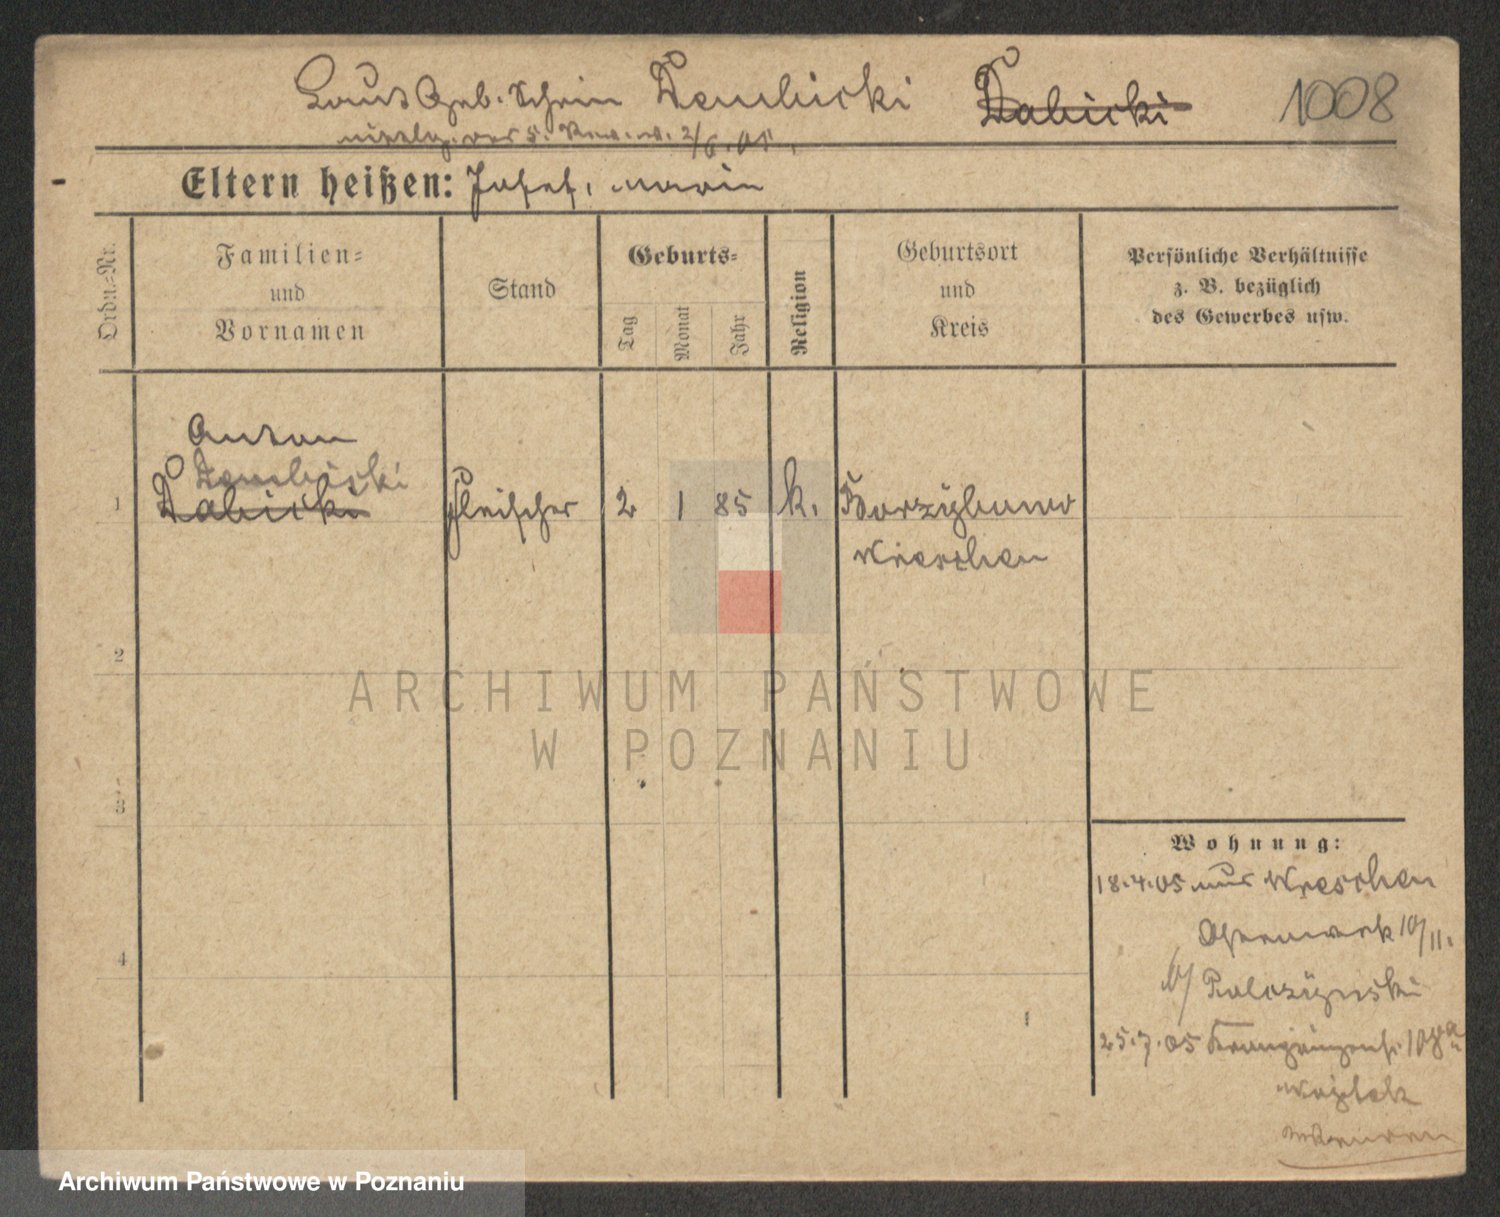 Laut Geb. Schein Dembicki Dabicki 1008
2/6. 05.
Eltern heißen: Josef, Maria
Ordn.-Nr.
Familien-
und
Vornamen
Stand
Geburts-
Tag
Monat
Jahr
Religion
Geburtsort
und
Kreis
Persönliche Verhältnisse
z. B. bezüglich
des Gewerbes usw.
Anton
Dembicki
1 Dabicki Fleischer 2 1 85 k.
Wreschen
2
ARCHIWUM PAŃSTWOWE
W POZNANIU
3
Wohnung:
18.4.05 aus Wreschen
10/II.
4
25.7.05
Archiwum Państwowe w Poznaniu